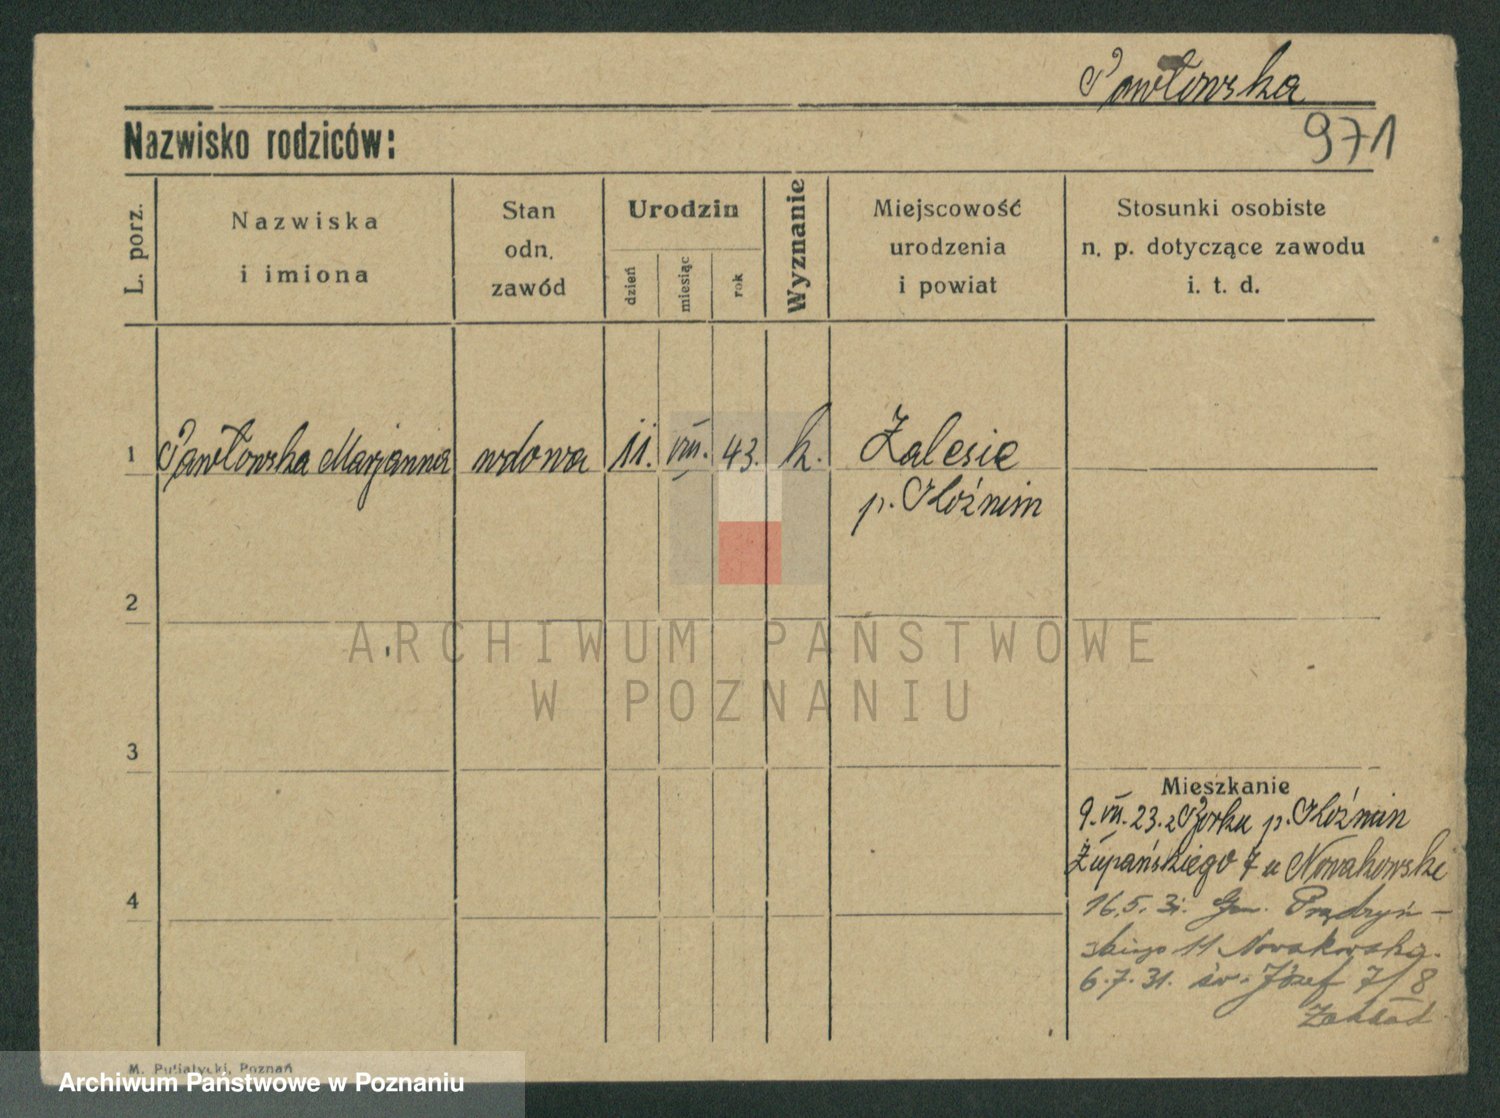 Pawłowska
971
Nazwisko rodziców:
L. porz.
Nazwiska
i imiona
Stan
odn.
zawód
Urodzin
dzień
miesiąc
rok
Wyznanie
Miejscowość
urodzenia
i powiat
Stosunki osobiste
n. p. dotyczące zawodu
i. t. d.
1 Pawłowska Marjanna wdowa 11. VIII. 43. k. Zalesie
p. Koźmin
2
ARCHIWUM PAŃSTWOWE
W POZNANIU
3
Mieszkanie
9. VII. 23. z Borku p. Koźmin
Żupańskiego 7 u Nowakowski
4
16.5.31. Gen. Prądzyń-
skiego 11 Nowakowska.
6.7.31. św. Józef 7/8
Zakład
M. Putiatycki, Poznań
Archiwum Państwowe w Poznaniu